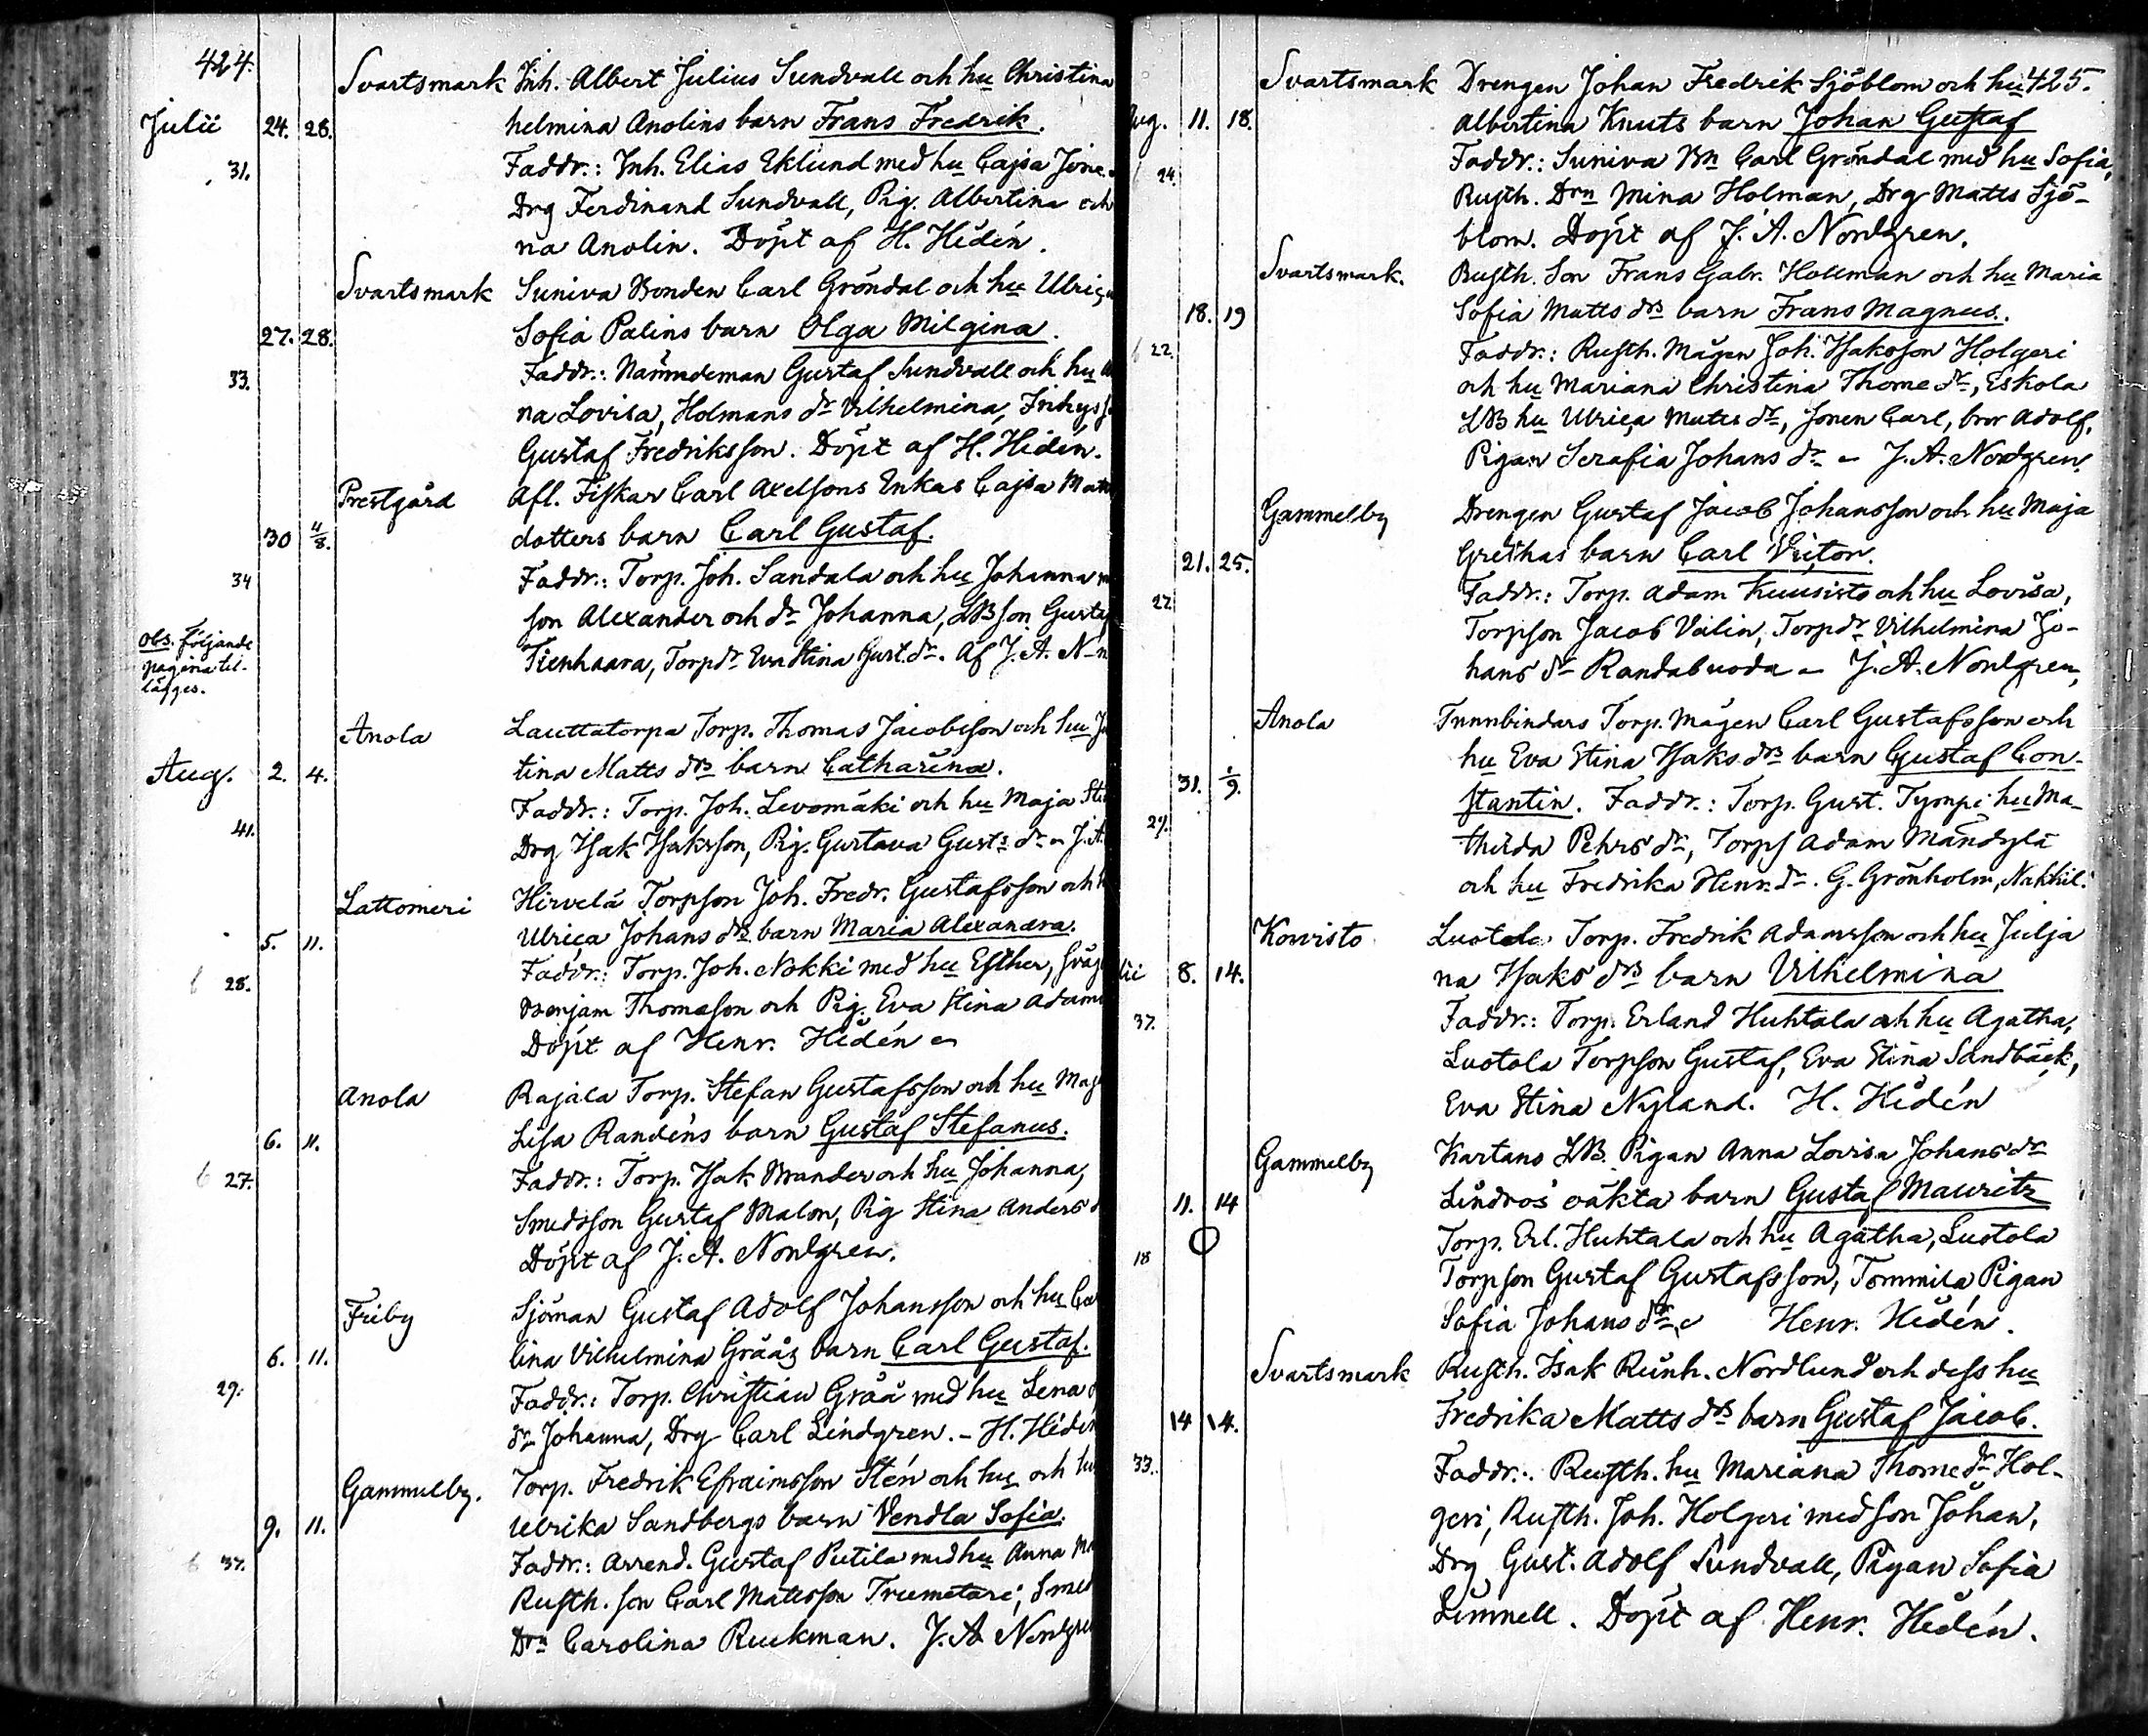 424.
Svartsmark Inh. Albert Julius Sundvall och hu Christina
Julii 24. 28. helmina Anolins barn Frans Fredrik.
31. Faddr.: Inh. Elias Eklund med hu Cajsa
Drg Ferdinand Sundvall, Pig. Albertina och
na Anolin. Döpt af H. Hidén.
Svartsmark Suniva Bonden Carl Gröndal och hu
27. 28. Sofia Palins barn Olga Milgina.
33. Faddr.: Nämndeman Gustaf Sundvall och hu
na Lovisa, Holmans dr Vilhelmina,
Gustaf Fredriksson. Döpt af H. Hidén.
Prestgård Afl. Fiskar Carl Axelsons Enkas Cajsa
30 4/8. dotters barn Carl Gustaf.
34 Faddr.: Torp. Joh. Sandala och hu Johanna
son Alexander och dr Johanna, LB son
Tienhaara, Torpdr Eva Stina Gust.dr. Af J. A. N-n
Obs. följande
pagina til-
lägges.
Anola Lauttatorpa Torp. Thomas Jacobsson och hu
Aug. 2. 4. tina Matts drs barn Catharina.
41. Faddr.: Torp. Joh. Levomäki och hu Maja
Drg Isak Isaksson, Pig. Gustava Gusts dr - J. A.
Lattomeri Hirvelä Torpson Joh. Fredr. Gustafsson och
5. 11. Ulrica Johans drs barn Maria Alexandra.
28. Faddr.: Torp. Joh. Nokki med hu Esther,
Benjam Thomasson och Pig. Eva Stina
Döpt af Henr. Hidén
Anola Rajala Torp. Stefan Gustafsson och hu
6. 11. Lisa Randéns barn Gustaf Stefanus.
27. Faddr.: Torp. Isak Brander och hu Johanna,
Smedsson Gustaf Malm, Pig Stina Anders
Döpt af J. A. Nordgren.
Friby Sjöman Gustaf Adolf Johansson och hu
6. 11. lina Vilhelmina Grååz barn Carl Gustaf.
29. Faddr.: Torp. Christian Gråå med hu Lena
dr Johanna, Drg Carl Lindgren. - H. Hidén
Gammelby. Torp. Fredrik Efraimsson Stén och hu och hu
9. 11. Ulrika Sandbergs barn Vendla Sofia.
37. Faddr.: Arrend. Gustaf Putila med hu Anna
Rusth. son Carl Mattsson Trumetari,
Drn Carolina Ruckman. J. A Nordgren
425.
Svartsmark Drengen Johan Fredrik Sjöblom och hu
Aug. 11. 18. Albertina Knuts barn Johan Gustaf
24. Faddr.: Suniva Bn Carl Gröndal med hu Sofia,
Rusth. Drn Mina Holman, Drg Matts Sjö-
blom. Döpt af J. A. Nordgren.
Svartsmark. Rusth. Son Frans Gabr. Hollman och hu Maria
18. 19 Sofia Matts drs barn Frans Magnus.
22. Faddr.: Rusth. Mågen Joh. Isaksson Holgeri
och hu Mariana Christina Thome dr, Eskola
LB hu Ulrica Matts dr, sonen Carl, bror Adolf,
Pigan Serafia Johans dr - J. A. Nordgren.
Gammelby Drengen Gustaf Jacob Johansson och hu Maja
21. 25. Grethas barn Carl Victor.
27 Faddr.: Torp. Adam Kuusisto och hu Lovisa,
Torpson Jacob Valin, Torpdr Vilhelmina Jo-
hans dr Randabuoda - J. A. Nordgren,
Anola Tunnbindars Torp. Mågen Carl Gustafsson och
hu Eva Stina Isaks drs barn Gustaf Con-
31. 1/9. stantin. Faddr.: Torp. Gust. Tyonpi hu Ma-
29. thilda Pehrs dr, Torps Adam Mändylä
och hu Fredrika Henr. dr. G. Grönholm, Nakkil.
Koivisto Luotola Torp. Fredrik Adamsson och hu Julja
lii 8. 14. na Isaks drs barn Vilhelmina
37. Faddr.: Torp. Erland Huhtala och hu Agatha,
Luotola Torpson Gustaf, Eva Stina Sandbäck,
Eva Stina Nyland. H. Hidén
Gammelby Kartano LB. Pigan Anna Lovisa Johans dr
11. 14 Lindros oäkta barn Gustaf Mauritz
18 Torp. Erl. Huhtala och hu Agatha, Luotola
Torpson Gustaf Gustafsson, Tommila Pigan
Sofia Johans dr Henr. Hidén.
Svartsmark Rusth. Isak Reinh. Nordlund och dess hu
14 14. Fredrika Matts drs barn Gustaf Jacob.
33. Faddr.: Rusth. hu Mariana Thome dr Hol-
geri, Rusth. Joh. Holgeri med son Johan,
Drg Gust. Adolf Sundvall, Pigan Sofia
Limnell. Döpt af Henr. Hidén.